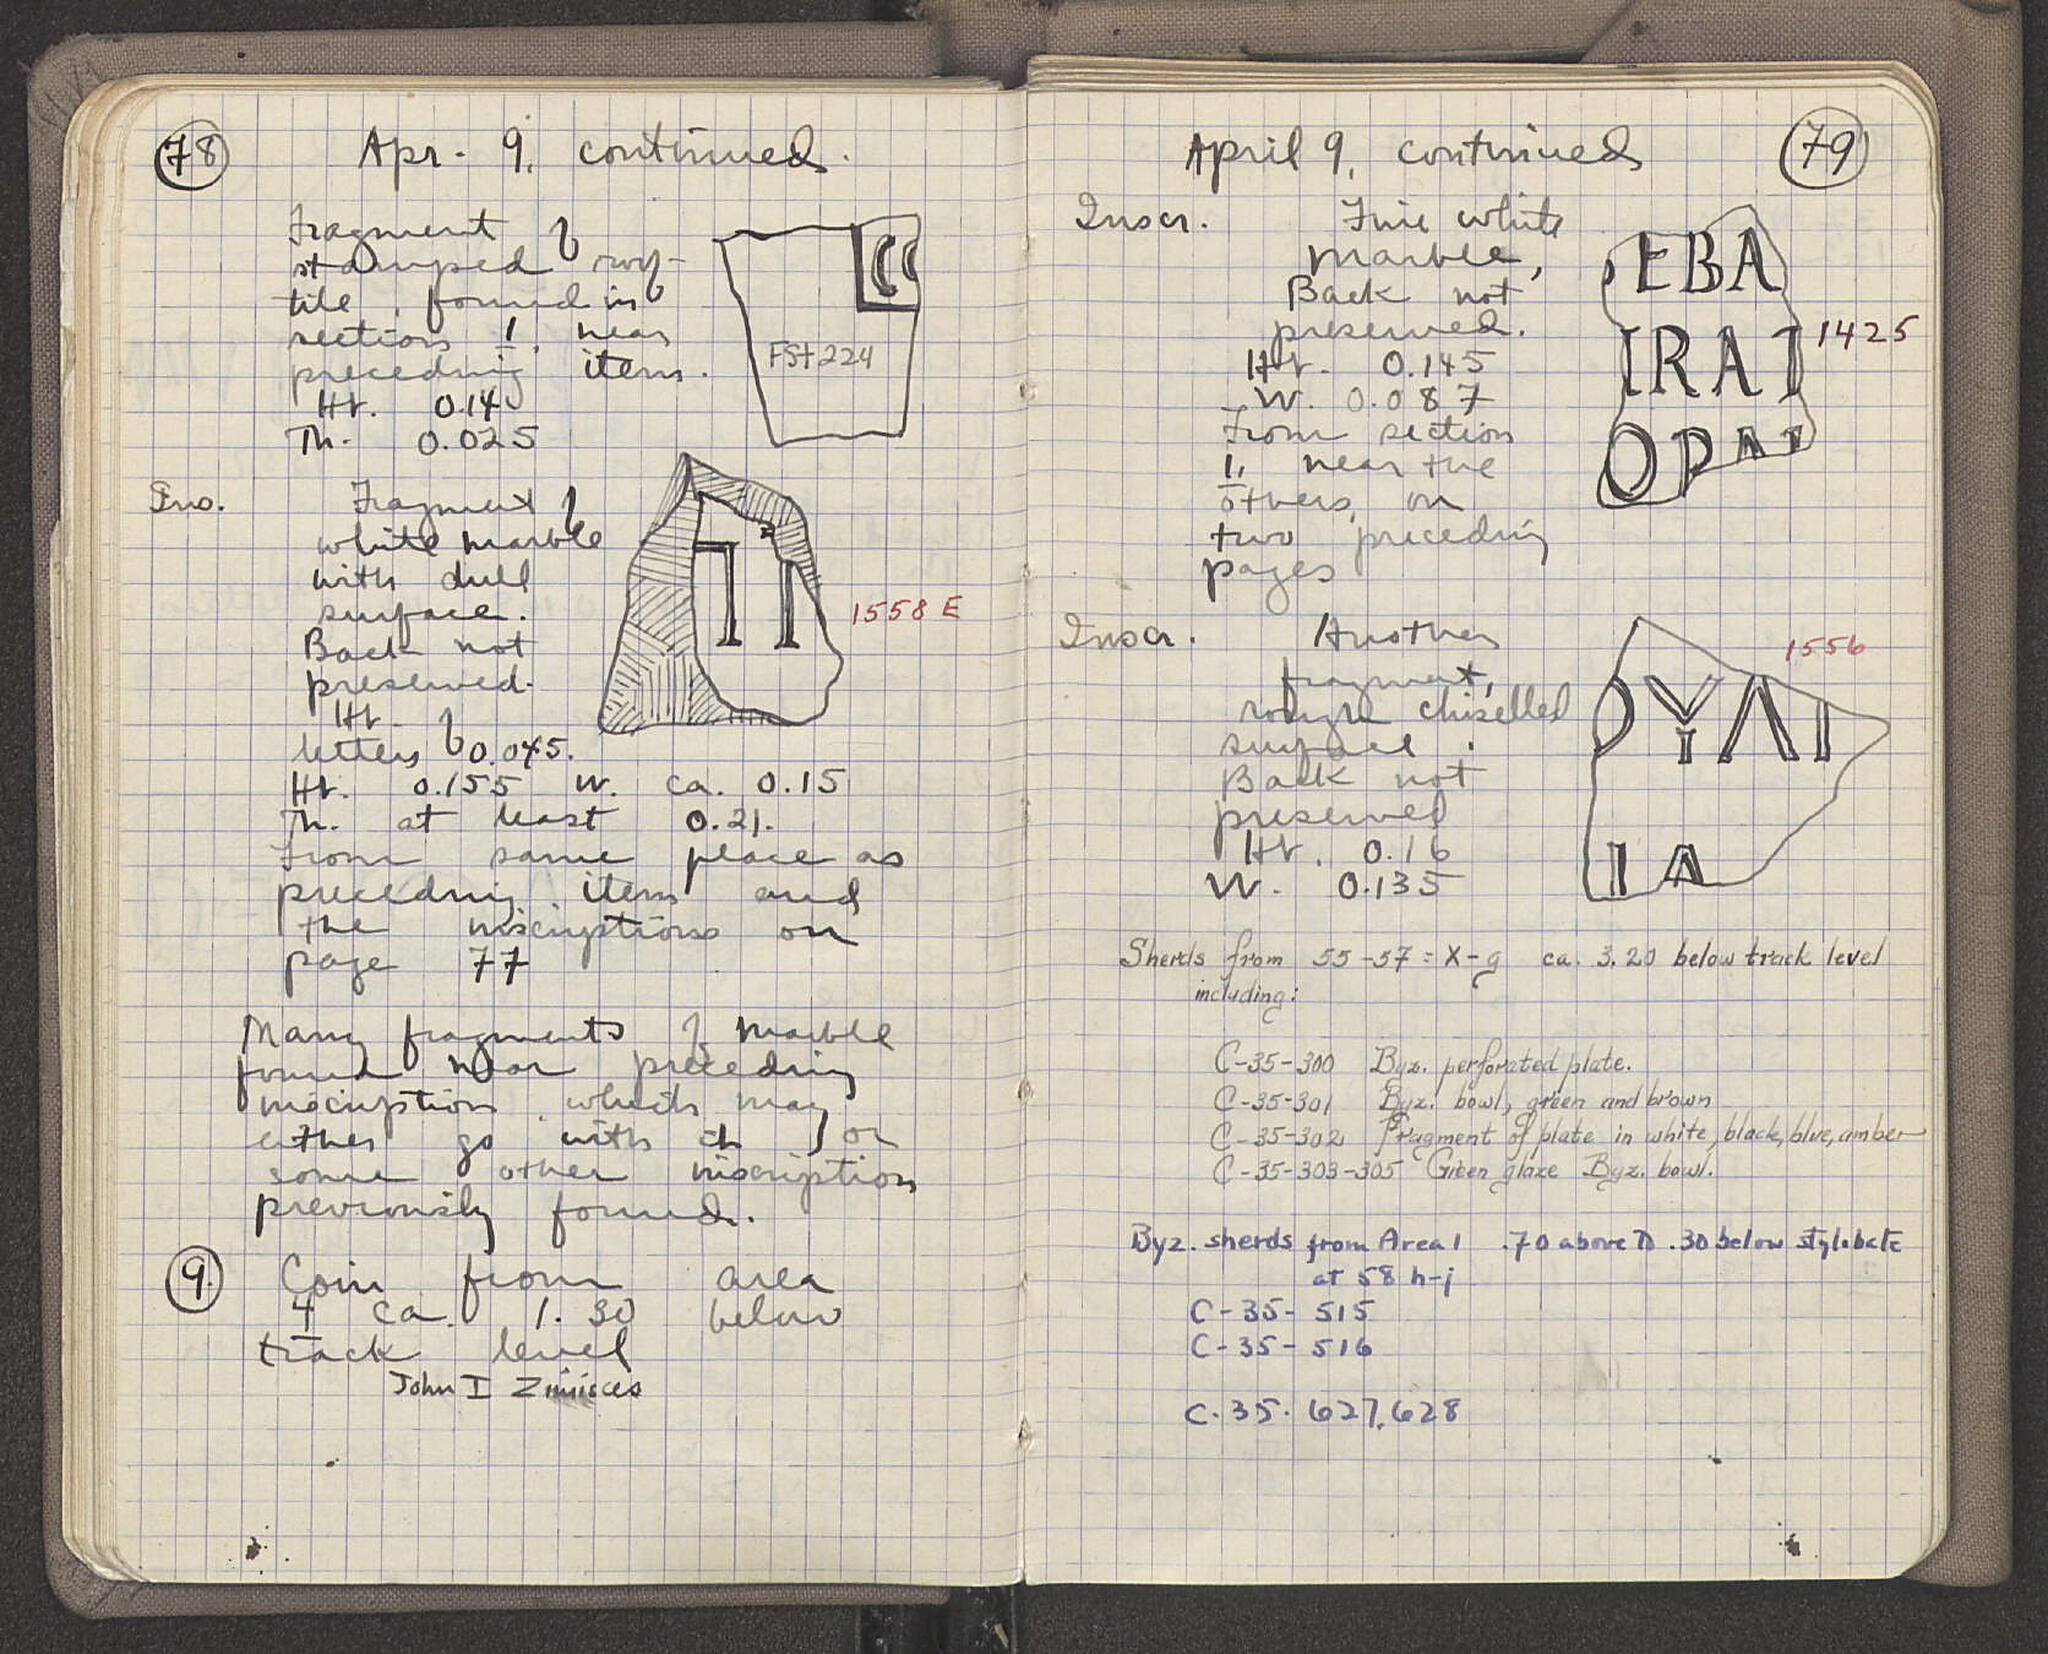 78
Apr. 9, continued.
Fragment of
stamped roof-
tile, found in
section 1, near
preceding item.
Ht. 0.14
Th. 0.025
C
FSt 224
Ins.
Fragment of
white marble
with dull
surface.
Back not
preserved.
Ht. of
letters 0.045.
Ht. 0.155 W. ca. 0.15
Th. at least 0.21.
From same place as
preceding item and
the inscriptions on
page 77
1558 E
Many fragments of marble
found near preceding
inscription which may
either go with it or
some other inscription
previously found.
9. Coin from area
4 ca. 1.30 below
track level
John I Zimisces
April 9, continued
79
Inscr. Fine white
marble,
Back not
preserved.
Ht. 0.145
W. 0.087
From section
1, near the
others, on
two preceding
pages
EBA
IRAI
OPAI
1425
Inscr. Another
fragment,
rough chiselled
surface.
Back not
preserved
Ht. 0.16
W. 0.135
1556
OYAI
IA
Sherds from 55-57 = X-g ca. 3.20 below track level
including:
C-35-300 Byz. perforated plate.
C-35-301 Byz. bowl, green and brown
C-35-302 Fragment of plate in white, black, blue, amber
C-35-303-305 Green glaze Byz. bowl.
Byz. sherds from Area 1 .70 above to .30 below stylobate
at 58 h-j
C-35-515
C-35-516
C.35.627,628